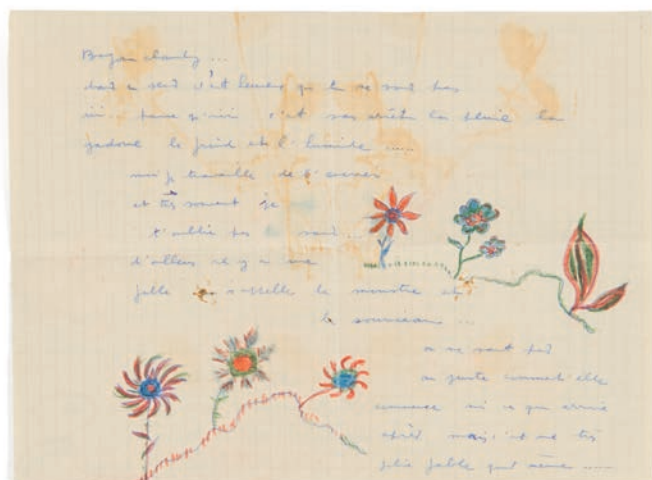 dans un sens c'est heureux que tu ne sois pas
ici parce qu'ici c'est sans arrêt la pluie la
gadoue le froid et l'humide .....
moi je travaille de
et très souvent je
t'oublie pas
d'ailleurs il y a une
fable qui s'appelle le monstre et
le souriceau ...
on ne sait pas
au juste comment elle
commence ni ce qui arrive
après mais c'est une très
jolie fable quand même .....